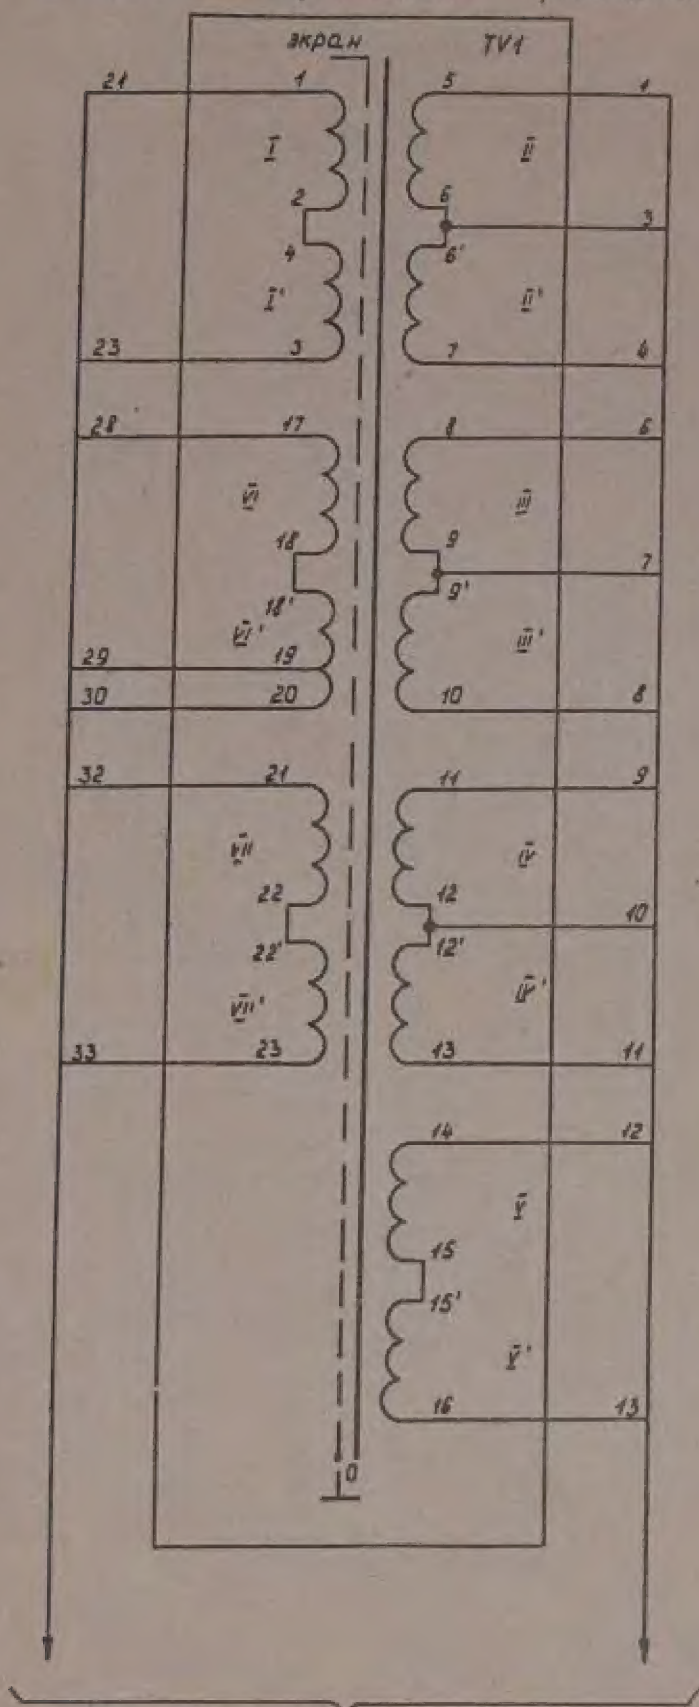 экран TV1
21 1 5 1
I II
2 6 3
4 6'
I' II'
23 3 7 4
28 17 8 6
VI III
18 9 7
18' 9'
VI' III'
29 19
30 20 10 8
32 21 11 9
VII IV
22 12 10
22' 12'
VII' IV'
33 23 13 11
14 12
V
15
15'
V'
16 13
0